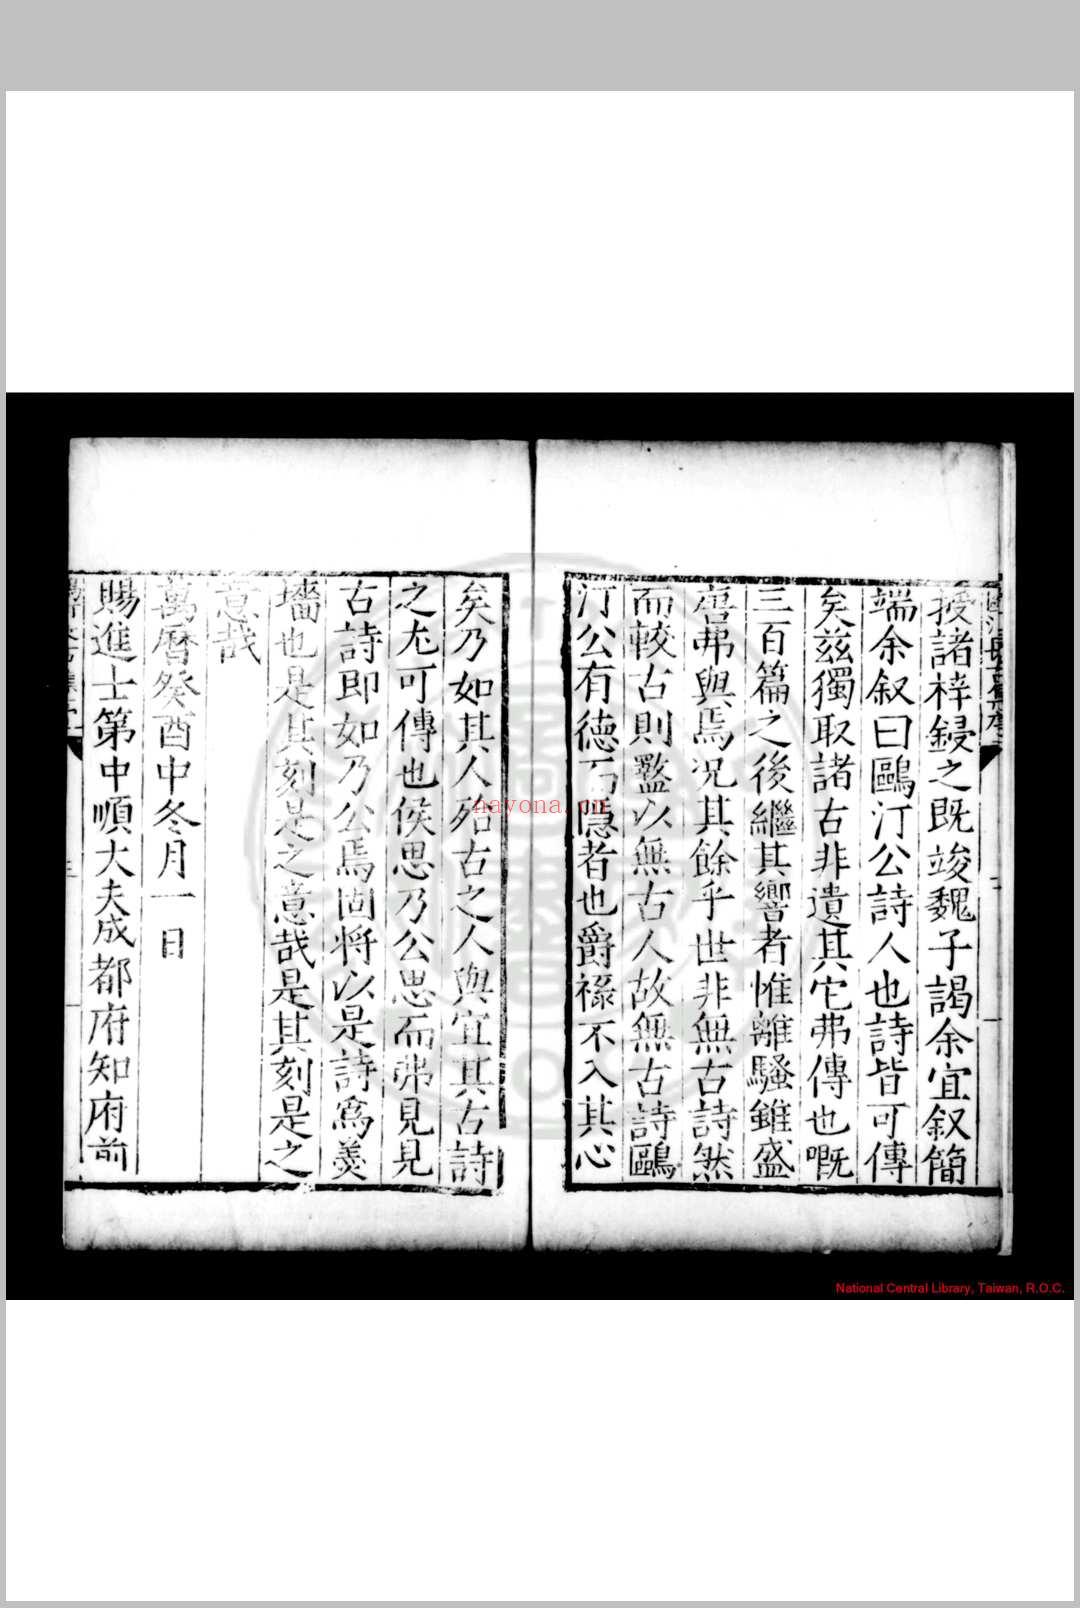 授諸梓鋟之既竣魏子謁余宜叙簡
端余叙曰鷗汀公詩人也詩皆可傳
矣茲獨取諸古非遺其它弗傳也嘅
三百篇之後繼其響者惟離騷雖盛
唐弗與焉況其餘乎世非無古詩然
而較古則盭以無古人故無古詩鷗
汀公有德而隱者也爵祿不入其心
矣乃如其人殆古之人與宜其古詩
之尤可傳也侯思乃公思而弗見見
古詩即如乃公焉固將以是詩爲羹
墻也是其刻是之意哉是其刻是之
意哉
萬曆癸酉中冬月一日
賜進士第中順大夫成都府知府前
nayona.cn
National Central Library, Taiwan, R.O.C.